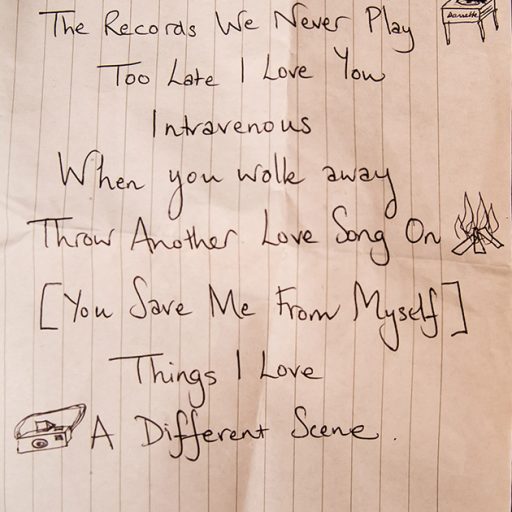 The Records We Never Play
Dansette
Too Late I Love You
Intravenous
When you walk away
Throw Another Love Song On
[You Save Me From Myself]
Things I Love
A Different Scene.